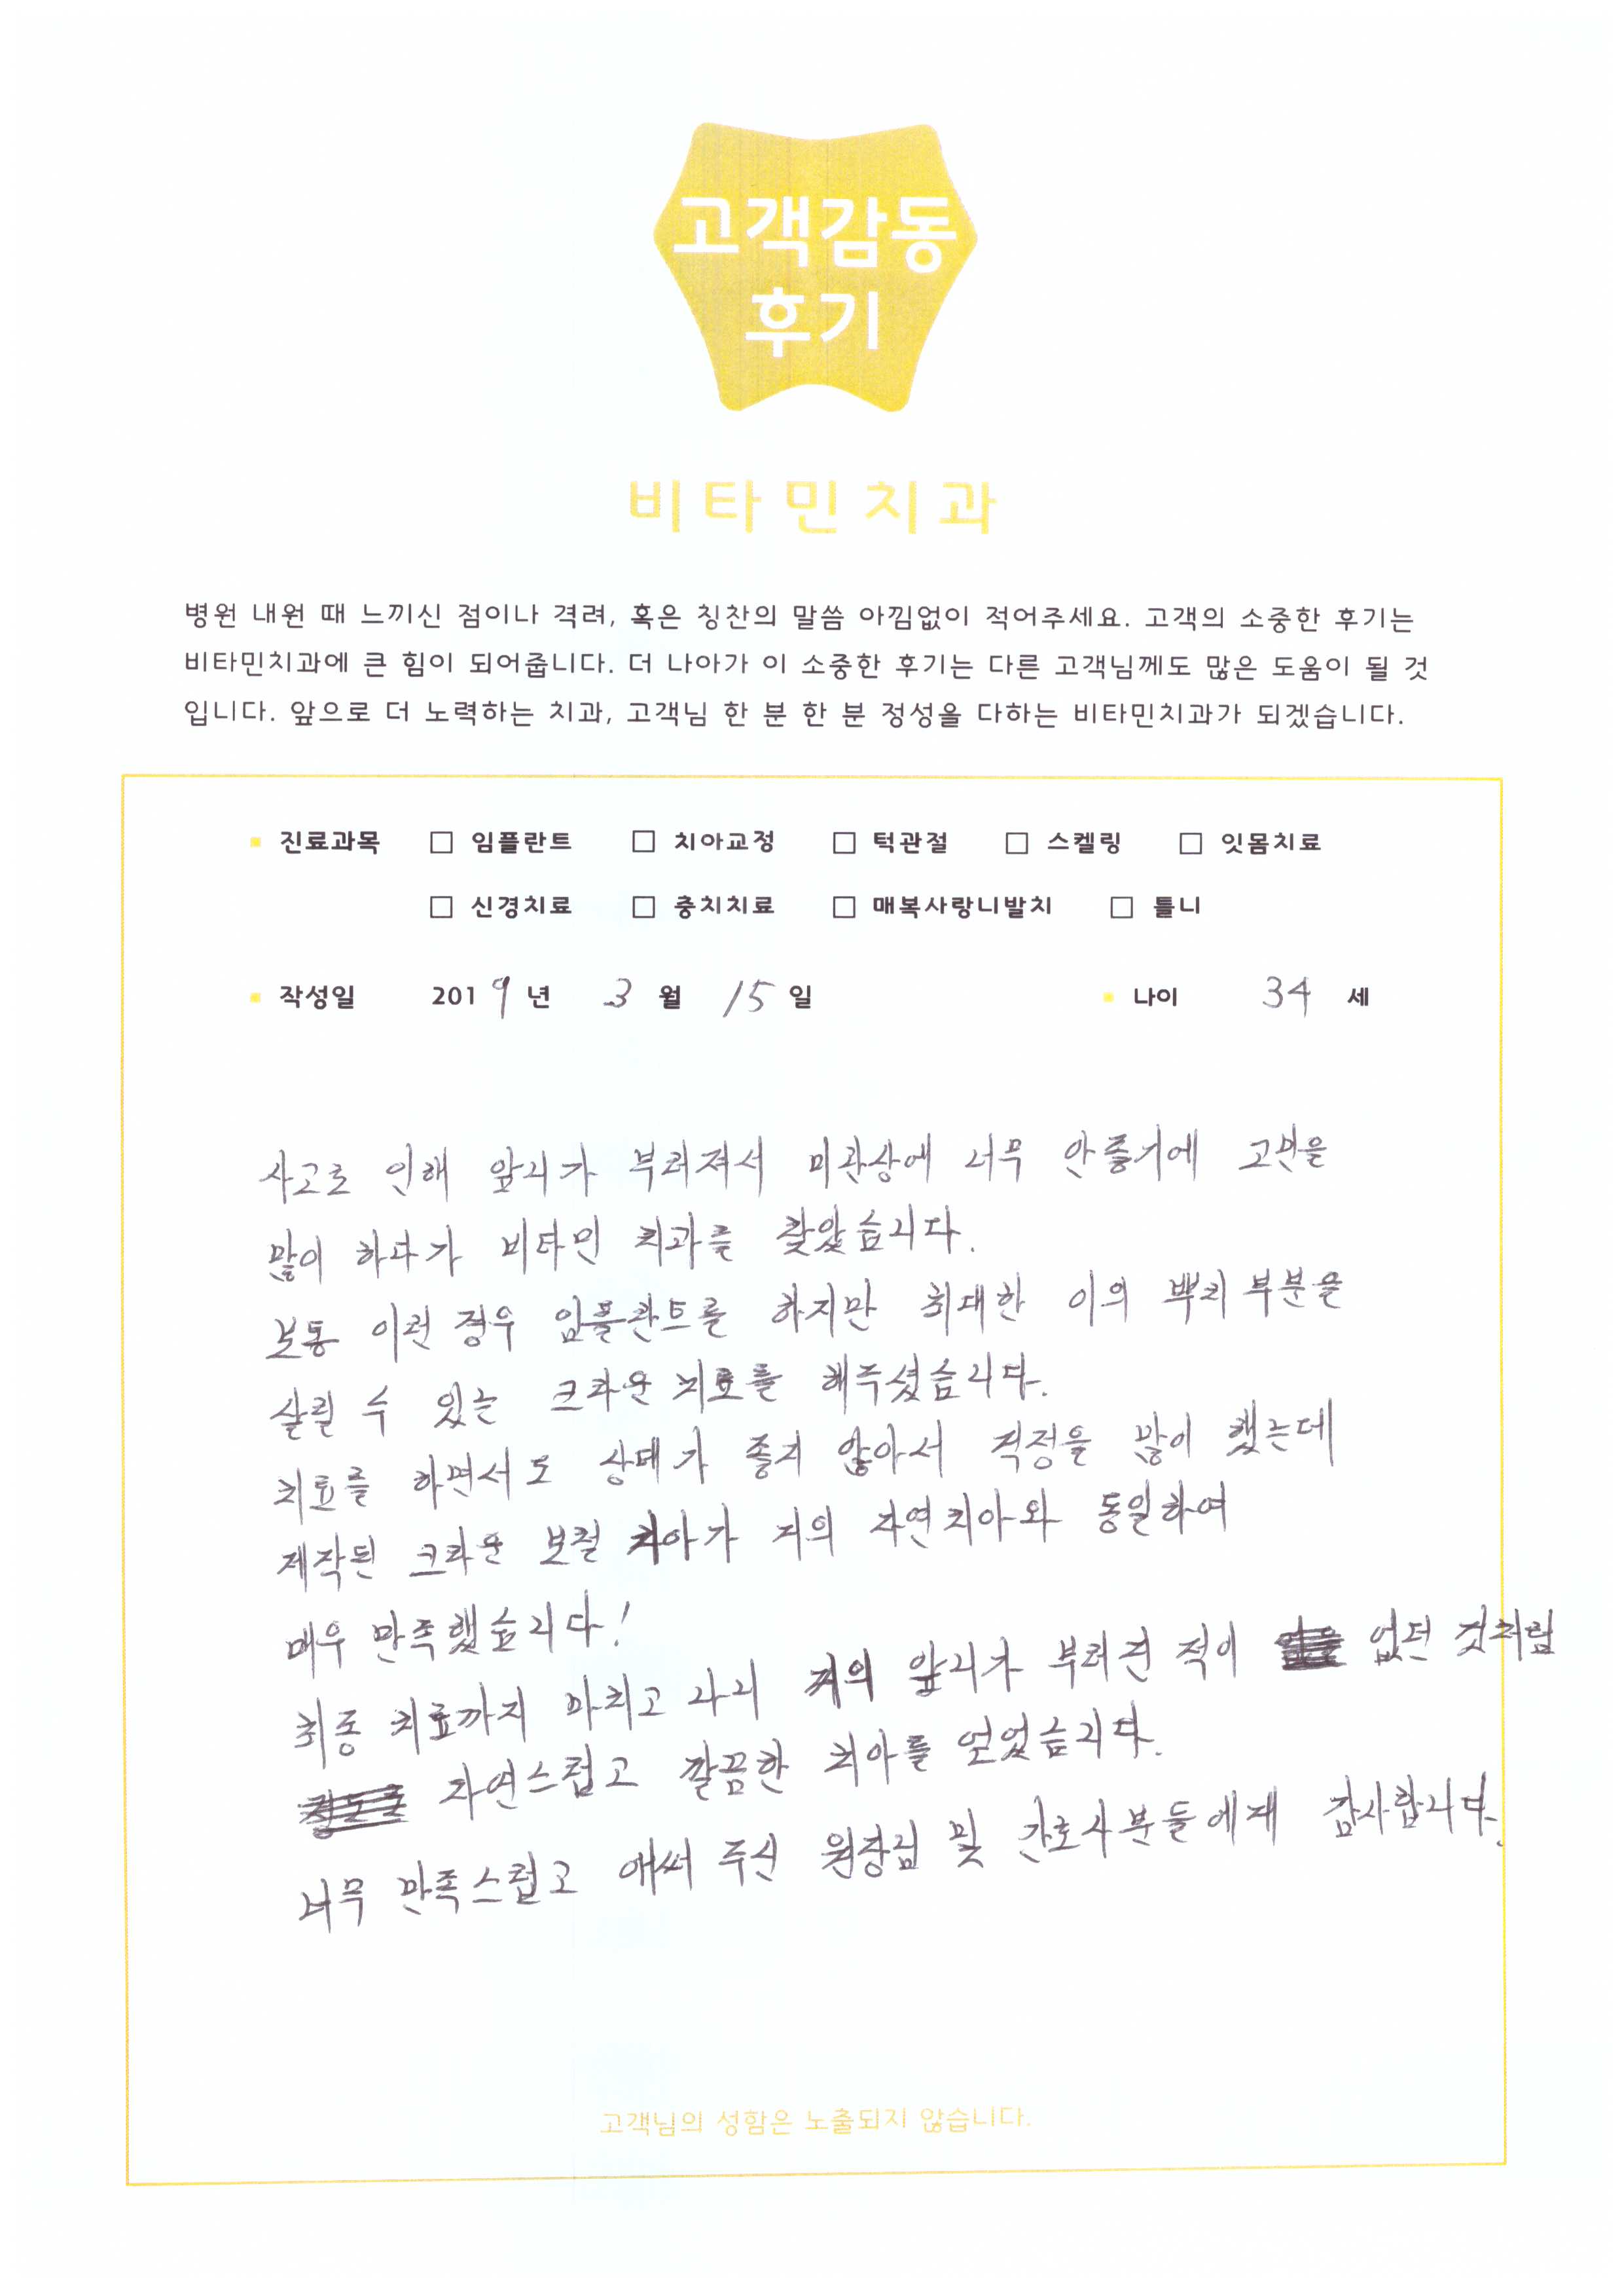 고객감동
후기
비타민치과
병원 내원 때 느끼신 점이나 격려, 혹은 칭찬의 말씀 아낌없이 적어주세요. 고객의 소중한 후기는
비타민치과에 큰 힘이 되어줍니다. 더 나아가 이 소중한 후기는 다른 고객님께도 많은 도움이 될 것
입니다. 앞으로 더 노력하는 치과, 고객님 한 분 한 분 정성을 다하는 비타민치과가 되겠습니다.
진료과목 □ 임플란트 □ 치아교정 □ 턱관절 □ 스켈링 □ 잇몸치료
□ 신경치료 □ 충치치료 □ 매복사랑니발치 □ 틀니
작성일 2019년 3월 15일 나이 34 세
사고로 인해 앞니가 부러져서 미관상에 너무 안좋기에 고민을
많이 하다가 비타민 치과를 찾았습니다.
보통 이런 경우 임플란트를 하지만 최대한 이의 뿌리 부분을
살릴 수 있는 크라운 치료를 해주셨습니다.
치료를 하면서도 상태가 좋지 않아서 걱정을 많이 했는데
제작된 크라운 보철 치아가 저의 자연치아와 동일하여
매우 만족했습니다!
최종 치료까지 마치고 나니 저의 앞니가 부러진 적이 없던 것처럼
자연스럽고 깔끔한 치아를 얻었습니다.
너무 만족스럽고 애써 주신 원장님 및 간호사분들에게 감사합니다.
고객님의 성함은 노출되지 않습니다.